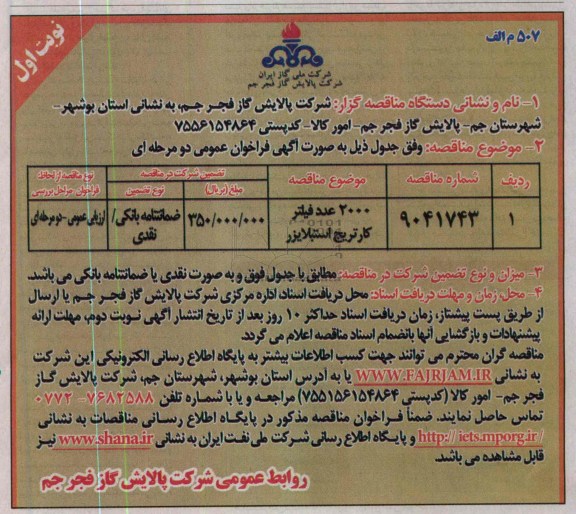 ۵۰۷ م الف
نوبت اول
شرکت ملی گاز ایران
شرکت پالایش گاز فجر جم
۱- نام و نشانی دستگاه مناقصه گزار: شرکت پالایش گاز فجـر جـم، به نشانی استان بوشهر-
شهرستان جم- پالایش گاز فجر جم- امور کالا- کدپستی ۷۵۵۶۱۵۴۸۶۴
۲- موضوع مناقصه: وفق جدول ذیل به صورت آگهی فراخوان عمومی دو مرحله ای
ردیف شماره مناقصه موضوع مناقصه تضمین شرکت در مناقصه نوع مناقصه از لحاظ
مبلغ (ریال) نوع تضمین فراخوان- مراحل بررسی
۱ ۹۰۴۱۷۴۳ ۲۰۰۰ عدد فیلتر ۳۵۰/۰۰۰/۰۰۰ ضمانتنامه بانکی/ ارزیابی عمومی - دو مرحله ای
کارتریج استبلایزر نقدی
۳- میزان و نوع تضمین شرکت در مناقصه: مطابق با جدول فوق و به صورت نقدی یا ضمانتنامه بانکی می باشد.
۴- محل، زمان و مهلت دریافت اسناد: محل دریافت اسناد اداره مرکزی شرکت پالایش گاز فجـر جـم یا ارسال
از طریق پست پیشتاز، زمان دریافت اسناد حداکثر ۱۰ روز بعد از تاریخ انتشار آگهی نـوبت دوم، مهلت ارائه
پیشنهادات و بازگشایی آنها بانضمام اسناد مناقصه اعلام می گردد.
مناقصه گران محترم می توانند جهت کسب اطلاعات بیشتر به پایگاه اطلاع رسانی الکترونیکی این شرکت
به نشانی WWW.FAJRJAM.IR یا به آدرس استان بوشهر، شهرستان جم، شرکت پالایش گـاز
فجر جم- امور کالا (کدپستی ۷۵۵۱۵۶۱۵۴۸۶۴) مراجعه و یا با شماره تلفن ۷۶۸۲۵۸۸-۰۷۷۲
تماس حاصل نمایند. ضمناً فـراخوان مناقصه مذکور در پایگاه اطلاع رسـانی مناقصات به نشانی
http://iets.mporg.ir/ و پایگاه اطلاع رسانی شرکت ملی نفت ایران به نشانی www.shana.ir نیـز
قابل مشاهده می باشد.
روابط عمومی شرکت پالایش گاز فجر جم